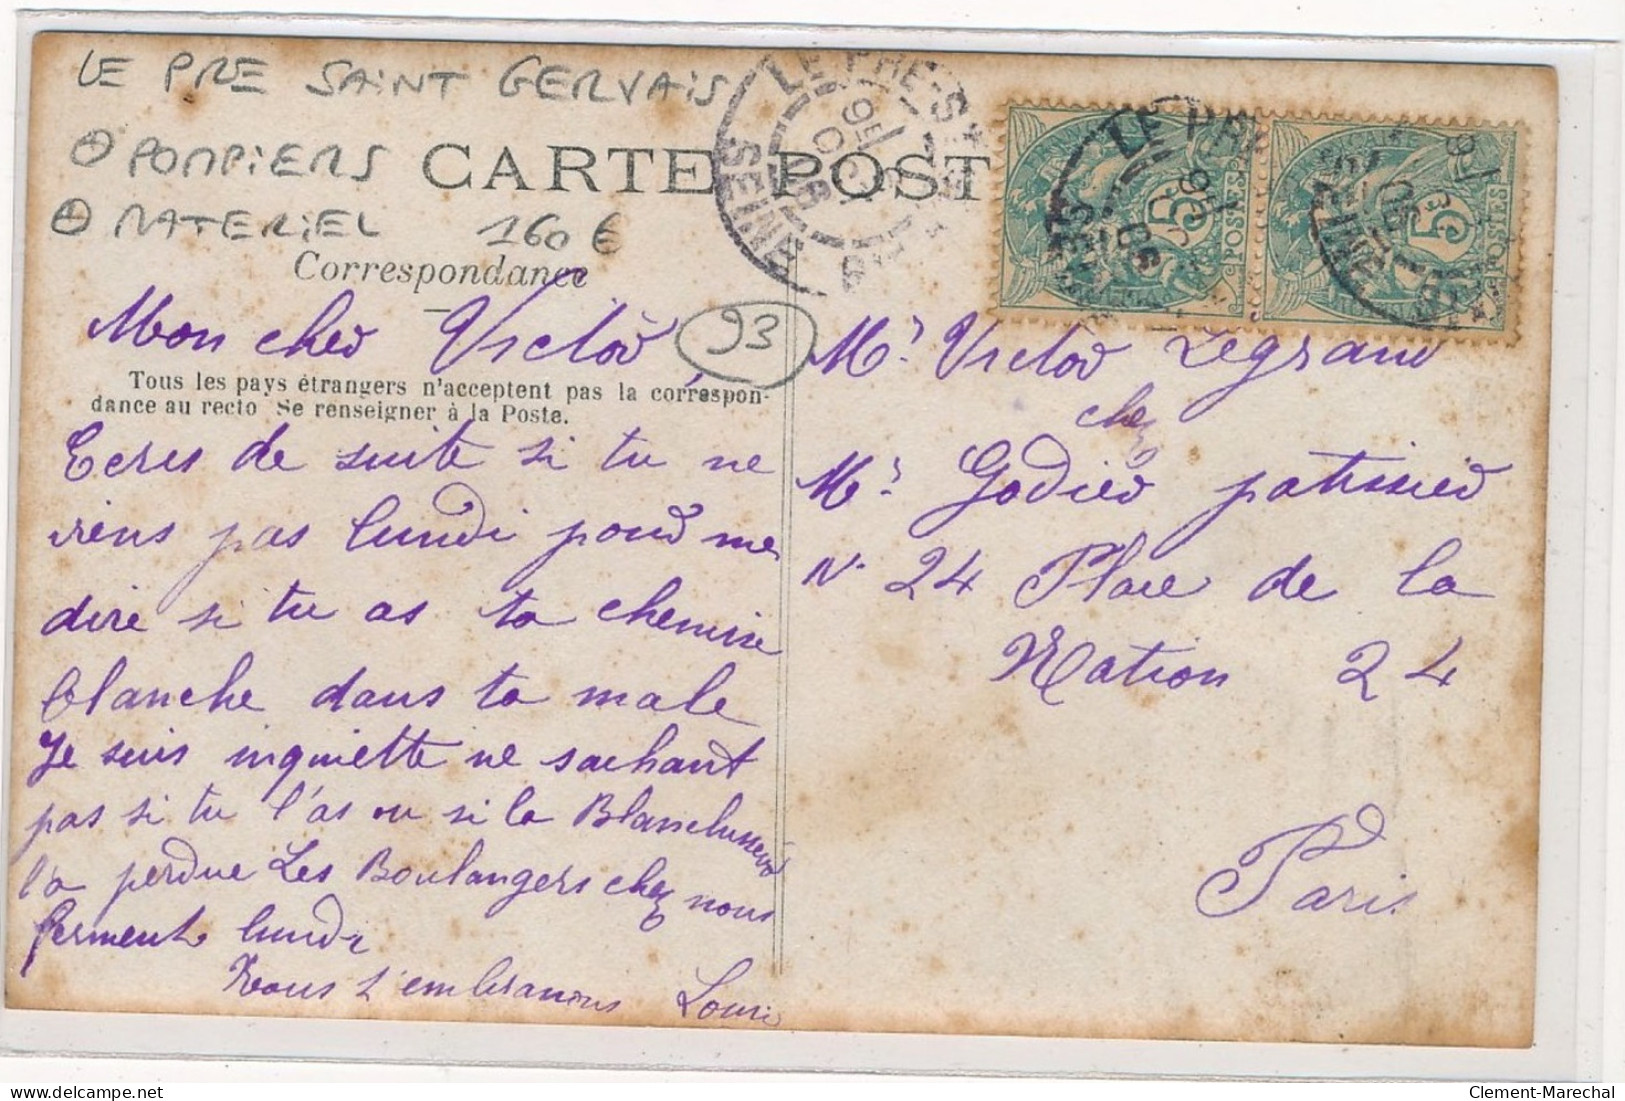 LE PRE SAINT GERVAIS
POMPIERS
MATERIEL 160€
CARTE POST
Correspondance
Mon cher Victor,
93
Tous les pays étrangers n'acceptent pas la correspon-
dance au recto Se renseigner à la Poste.
Ecris de suite si tu ne
viens pas lundi pour me
dire si tu as ta chemise
blanche dans ta male
Je suis inquiette ne sachant
pas si tu l'as ou si la Blanchisseur
l'a perdue Les Boulangers chez nous
ferment lundi
Nous t'embrassons Louis
Mr Victor Legrand
chez
Mr Godier patissier
N. 24 Place de la
Nation 24
Paris
LE PRE ST
SEINE
5 POSTES
5 POSTES
LE PRE
SEINE
Clement-Marechal